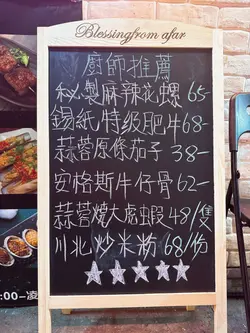 Blessingfrom afar
廚師推薦
秘製麻辣花螺 65-
錫紙特級肥牛 68-
蒜蓉原條茄子 38-
安格斯牛仔骨 62-
蒜蓉燒大虎蝦 48/隻
川北炒米粉 68/份
:00-凌